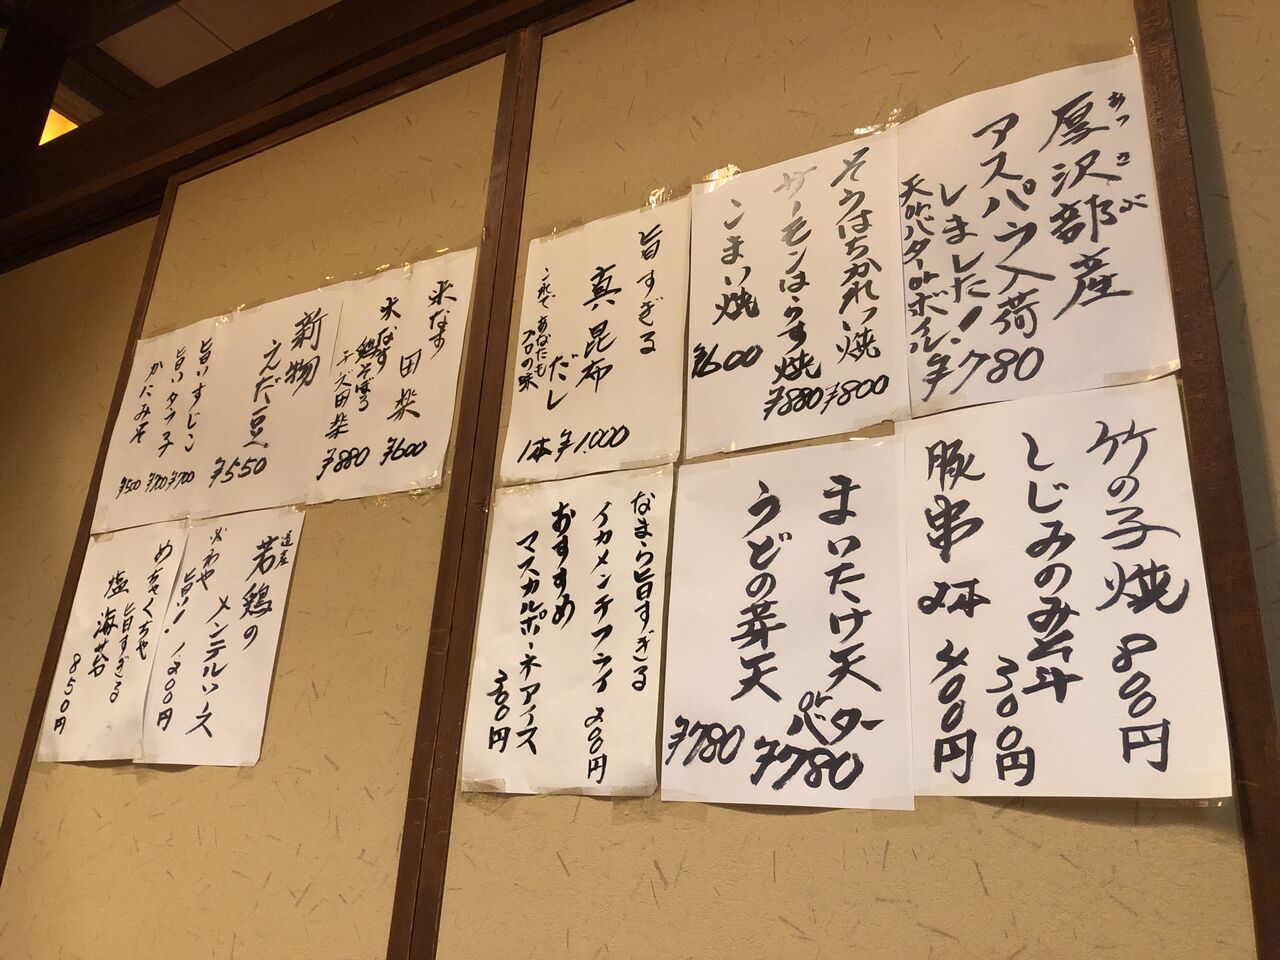 あっさぶ
厚沢部産
アスパラ入荷
しました!
天orバターorボイル
¥780
そうはちかれい焼
¥800
サーモンはらす焼
¥880
こまい焼
¥600
旨すぎる
真昆布
だし
これであなたも
プロの味
1本¥1,000
竹の子焼 800円
しじみのみそ汁
300円
豚串 2本 400円
まいたけ天
orバター
¥780
うどの芽天
¥780
なまら旨すぎる
イカメンチフライ 200円
おすすめ
マスカルポーネアイス
300円
米なす
田楽
¥600
米なす
鶏そぼろ
チーズ田楽
¥880
新物
えだ豆
¥550
旨いすじこ
¥700
旨いタラ子
¥700
かにみそ
¥500
道産
若鶏の
メンテルソース
旨ソ!
1200円
めちゃくちゃ
旨すぎる
塩海苔
850円